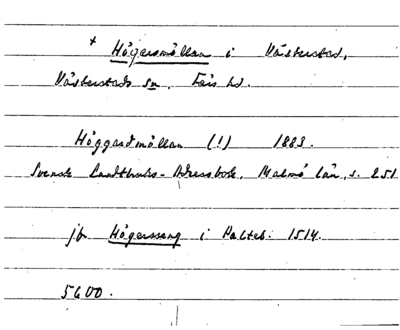 + Högersmöllan i Västerstad,
Västerstads sn. Färs hd.
Höggardmöllan (!) 1883.
Svensk Landtbruks-Adressbok, Malmö län, s. 251
jfr Högersseng i Palteb. 1514.
5600.